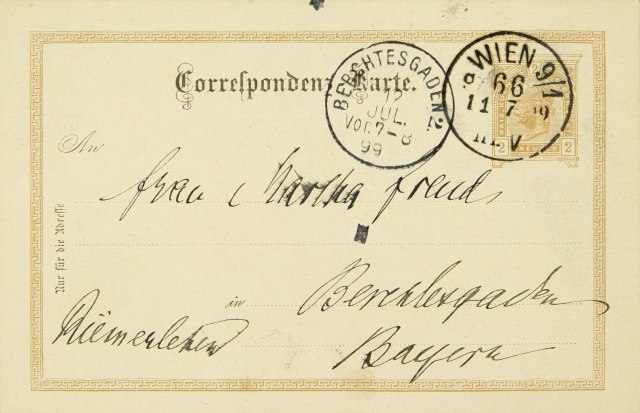 Correspondenz-Karte.
BERCHTESGADEN 2.
12
JUL.
Vor. 7-8
99
WIEN 9/1
66
11 7 99
III. V
2 2
An
Frau Martha Freud
Nur für die Adresse
in Berchtesgaden
Riemerlehen
Bayern